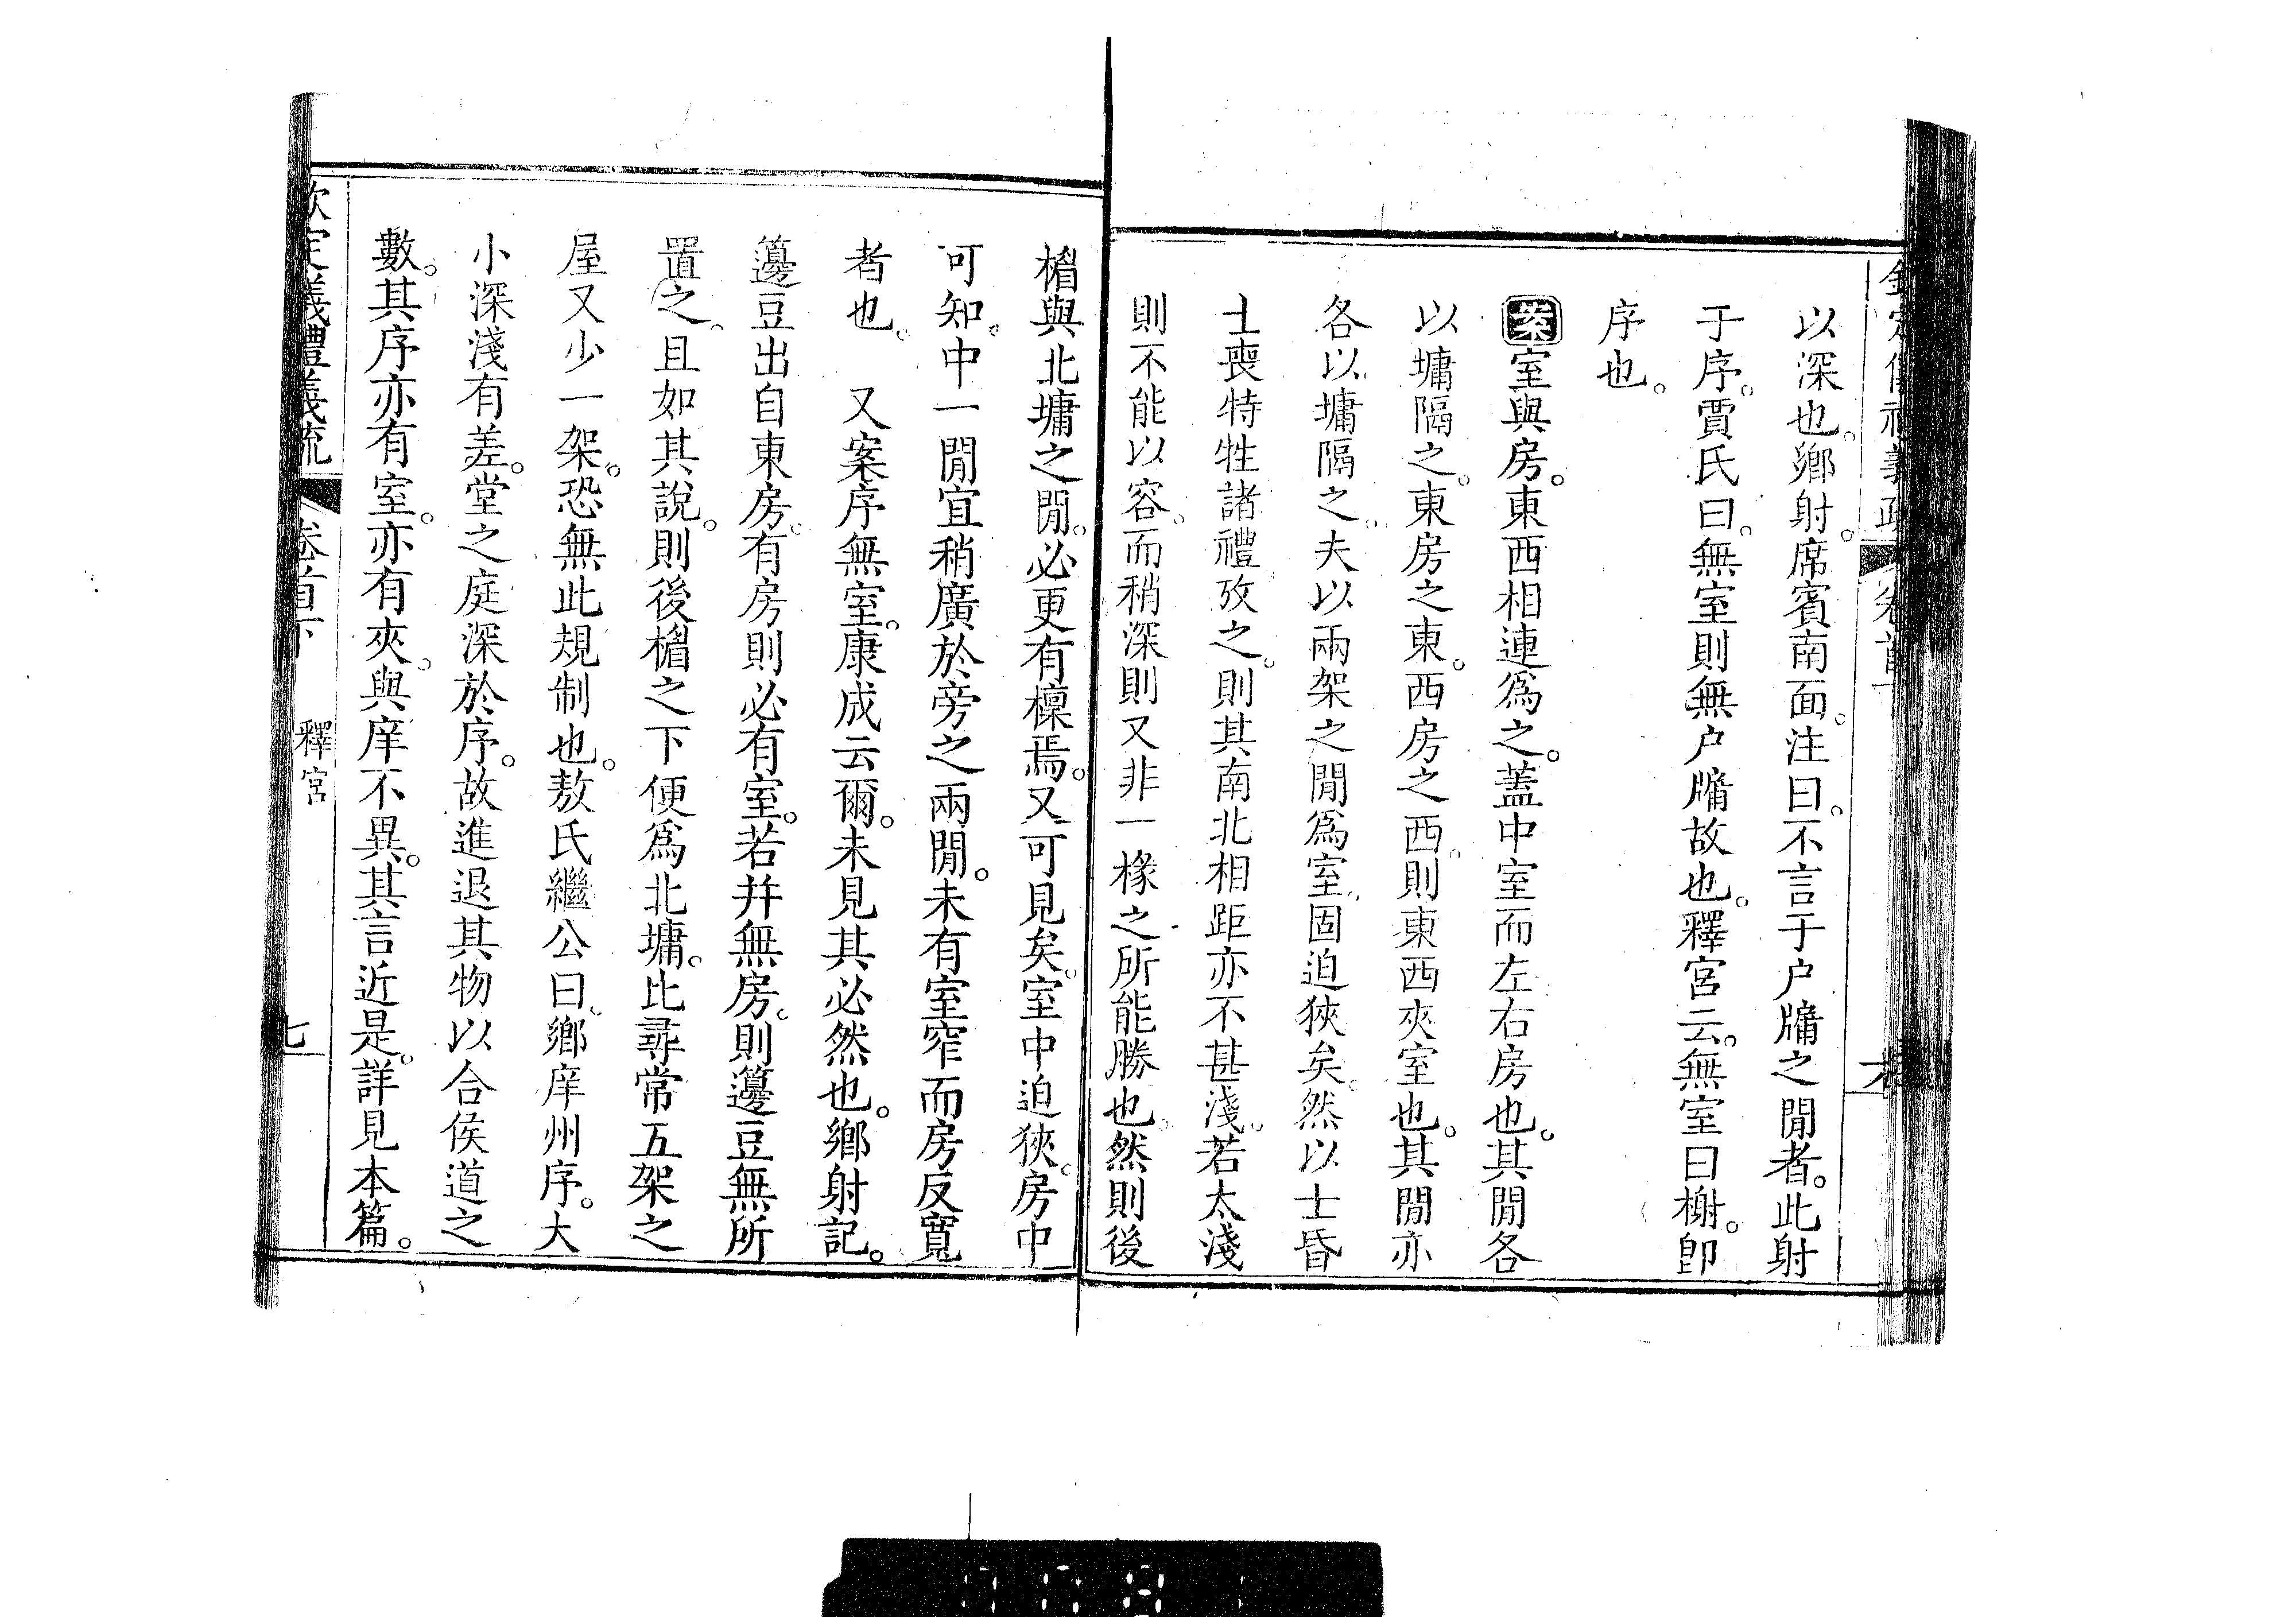 以深也。鄉射。席賓南面。注曰。不言于户牖之閒者。此射
于序。賈氏曰。無室則無户牖故也。釋宮云。無室曰榭。卽
序也。
案室與房。東西相連爲之。蓋中室而左右房也。其閒各
以墉隔之。東房之東。西房之西。則東西夾室也。其閒亦
各以墉隔之。夫以兩架之閒爲室。固迫狹矣。然以士昏
士喪特牲諸禮攷之。則其南北相距亦不甚淺。若太淺
則不能以容。而稍深則又非一椽之所能勝也。然則後
楣與北墉之閒。必更有檩焉。又可見矣。室中迫狹。房中
可知。中一閒宜稍廣於旁之兩閒。未有室窄而房反寬
者也。　又案序無室。康成云爾。未見其必然也。鄉射記。
籩豆出自東房。有房則必有室。若幷無房。則籩豆無所
置之。且如其說。則後楣之下便爲北墉。比尋常五架之
屋又少一架。恐無此規制也。敖氏繼公曰。鄉庠州序。大
小深淺有差。堂之庭深於序。故進退其物以合侯道之
數。其序亦有室。亦有夾。與庠不異。其言近是。詳見本篇。
欽定儀禮義疏 卷首下 釋宮 七